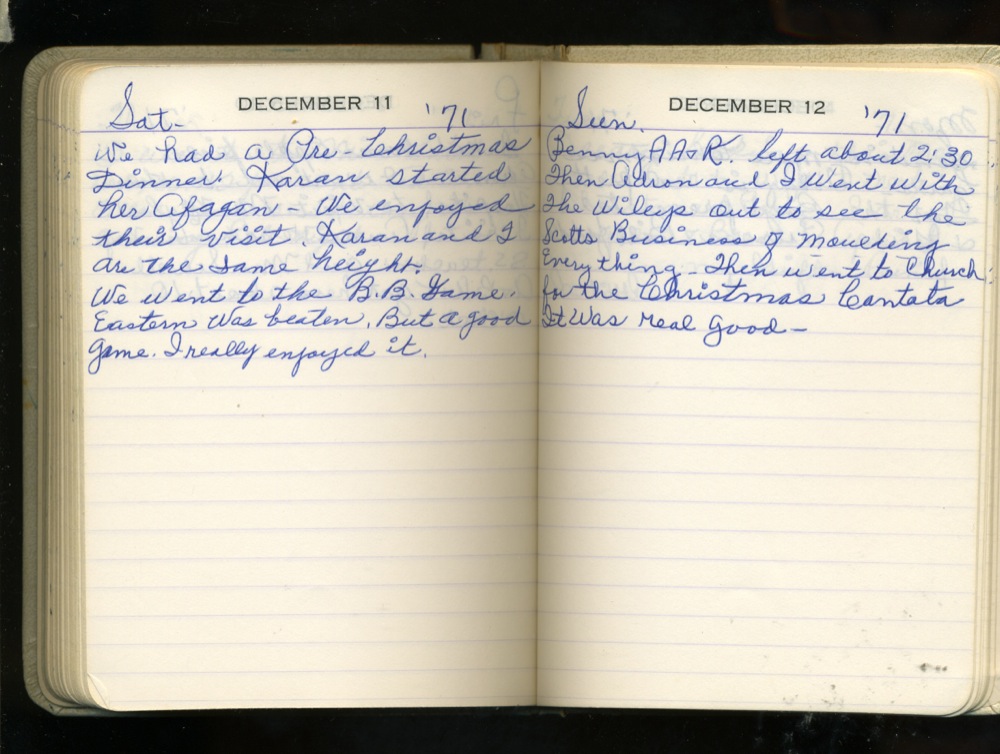 DECEMBER 11
Sat- '71
We had a Pre-Christmas
Dinner. Karan started
her Afagan - We enjoyed
their visit. Karan and I
are the same height.
We went to the B.B. Game.
Eastern was beaten. But a good
game. I really enjoyed it.
DECEMBER 12
Sun. '71
Benny A A & K. left about 2:30
Then Adron and I went with
the Wileys out to see the
Scotts Business of Moulding
Everything - Then went to Church
for the Christmas Cantata
It was real good -